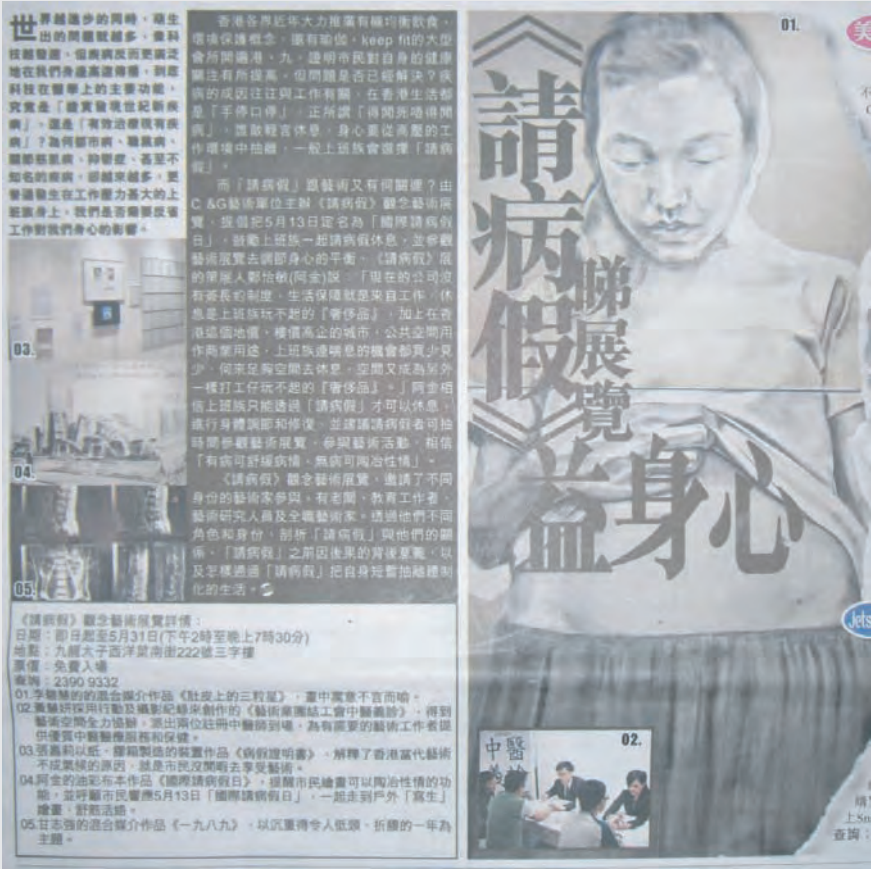 《請病假》
睇展覽
益身心
01.
世界越進步的同時，衍生
出的問題就越多，像科
技越發達，但疾病反而更廣泛
地在我們身邊高速傳播，到底
科技在醫學上的主要功能，
究竟是「證實發現世紀新疾
病」，還是「有效治療現有疾
病」？為何都市病、職業病、
關節慈肌病、抑鬱症、甚至不
知名的疾病，卻越來越多，更
普遍發生在工作壓力甚大的上
班族身上，我們是否需要反省
工作對我們身心的影響。
03.
04.
05.
香港各界近年大力推廣有機均衡飲食，
環境保護概念，還有瑜伽，keep fit的大型
會所開遍港、九，證明市民對自身的健康
關注有所提高。但問題是否已經解決？疾
病的成因往往與工作有關，在香港生活都
是「手停口停」，正所謂「得閒死唔得閒
病」，誰敢輕言休息，身心要從高壓的工
作環境中抽離，一般上班族會選擇「請病
假」。
而「請病假」跟藝術又有何關連？由
C &G藝術單位主辦《請病假》觀念藝術展
覽，提倡把5月13日定名為「國際請病假
日」，鼓勵上班族一起請病假休息，並參觀
藝術展覽去調節身心的平衡。《請病假》展
的策展人鄭怡敏(阿金)說：「現在的公司沒
有酋長的制度，生活保障就是來自工作，休
息是上班族玩不起的『奢侈品』，加上在香
港這個地價、樓價高企的城市，公共空間用
作商業用途，上班族連喘息的機會都買少見
少，何來足夠空間去休息，空間又成為另外
一樣打工仔玩不起的『奢侈品』。」阿金相
信上班族只能透過「請病假」才可以休息，
進行身體調節和修復，並建議請病假者可抽
時間參觀藝術展覽，參與藝術活動，相信
「有病可舒緩病情，無病可陶冶性情」。
《請病假》觀念藝術展覽，邀請了不同
身份的藝術家參與，有老闆、教育工作者、
藝術研究人員及全職藝術家。透過他們不同
角色和身份，剖析「請病假」與他們的關
係，「請病假」之前因後果的背後意義，以
及怎樣通過「請病假」把自身短暫抽離體制
化的生活。
《請病假》觀念藝術展覽詳情：
日期：即日起至5月31日(下午2時至晚上7時30分)
地點：九龍太子西洋菜南街222號三字樓
票價：免費入場
查詢：2390 9332
01.李敏慧的的混合媒介作品《肚皮上的三粒星》，畫中寓意不言而喻。
02.黃慧妍採用行動及攝影紀錄來創作的《藝術業團結工會中醫義診》，得到
藝術空間全力協辦，派出兩位註冊中醫師到場，為有需要的藝術工作者提
供優質中醫醫療服務和保健。
03.張嘉莉以紙、膠箱製造的裝置作品《病假證明書》，解釋了香港當代藝術
不成氣候的原因，就是市民沒閒暇去享受藝術。
04.阿金的油彩布本作品《國際請病假日》，提醒市民繪畫可以陶冶性情的功
能，並呼籲市民響應5月13日「國際請病假日」，一起走到戶外「寫生」
繪畫，舒筋活絡。
05.甘志強的混合媒介作品《一九八九》，以沉重得令人低頭、折腰的一年為
主題。
02.
中醫
義診
美
Jets
上Sn
查詢：